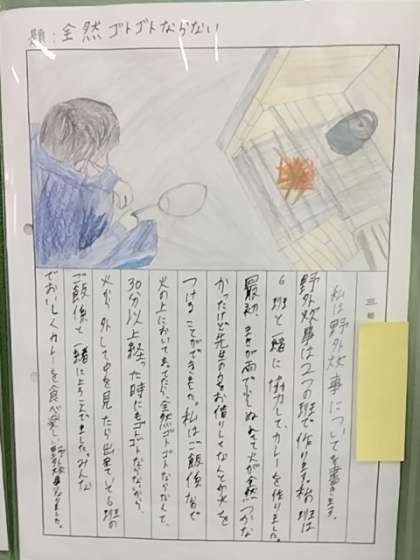 題:全然ゴトゴトならない
私は野外炊事についてを書きます。
野外炊事は2つの班で作ります。私の班は
6班と一緒に協力して、カレーを作りました。
最初、まきが雨でぬれて火が全然つかな
かったけど先生の力をお借りしてなんとか火を
つけることができました。私はご飯係なので
火の上においてまってたら、全然ゴトゴトならなくて、
30分以上経った時にもゴトゴトならないから、
火から外して中を見たら出来ていて6班の
ご飯係と一緒によろこびました。みんな
でおいしくカレーを食べ楽しい野外炊事になりました。